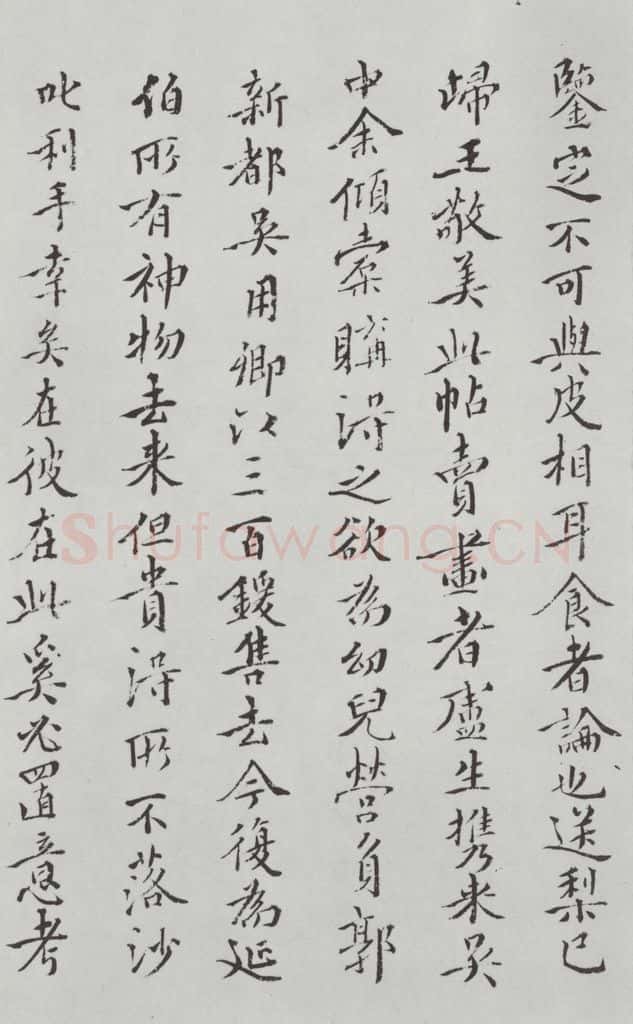 鑒定不可與皮相耳食者論也送梨已
歸王敬美此帖賣畫者盧生携来吴
中余傾橐購得之欲為幼兒營負郭
新都吴用卿以三百鍰售去今復為延
伯所有神物去来但貴得所不落沙
叱利手幸矣在彼在此奚必置意考
Shufawang.CN